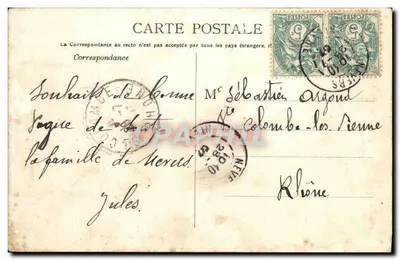 CARTE POSTALE
La Correspondance au recto n'est pas acceptée par tous les pays étrangers.
Correspondance
Souhaits de bonne
Vogue de tout
la famille de Nevers
Jules
Mr Sébastien Argoud
Ste Colombe-les-Vienne
Rhône